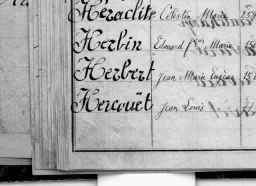 Heraclite Célestin Marie
Herbin Edmond fois Marie
Herbert Jean Marie Eugène 15
Hercouët Jean Louis